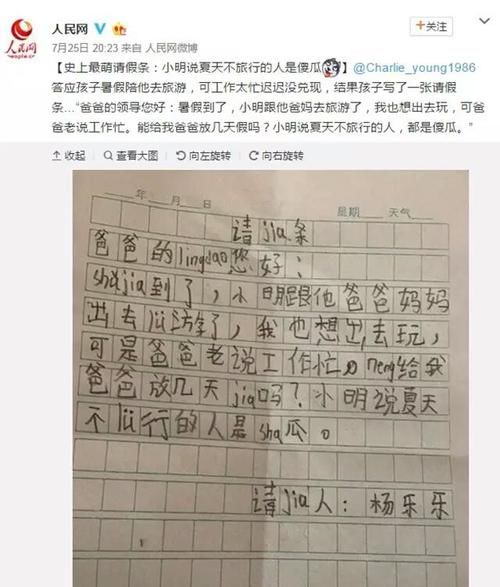 人民网
people.cn
人民网
+关注
7月25日 20:23 来自 人民网微博
【史上最萌请假条：小明说夏天不旅行的人是傻瓜】@Charlie_young1986
答应孩子暑假陪他去旅游，可工作太忙迟迟没兑现，结果孩子写了一张请假
条…“爸爸的领导您好：暑假到了，小明跟他爸妈去旅游了，我也想出去玩，可爸
爸老说工作忙。能给我爸爸放几天假吗？小明说夏天不旅行的人，都是傻瓜。”
收起 查看大图 向左旋转 向右旋转
年 月 日 星期 天气
请jia条
爸爸的lingdao您好：
shǔjia到了，小明跟他爸爸妈妈
出去lǚ游了，我也想出去玩，
可是爸爸老说工作忙。neng给我
爸爸放几天jia吗？小明说夏天
不lǚ行的人是sha瓜。
请jia人：杨乐乐